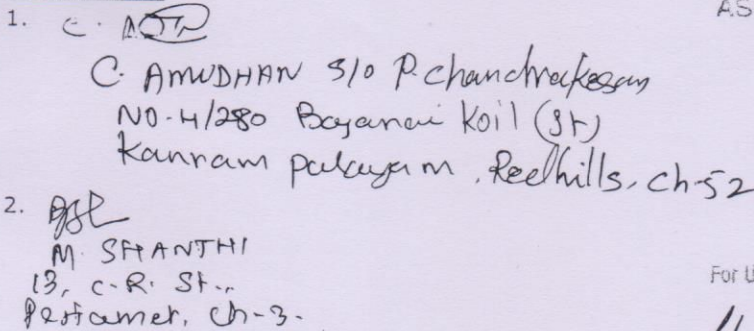 1.
C. AMUDHAN S/o P. Chandrakesan
NO-4/280 Bajanai Koil (St)
Kannam palayam, Redhills, Ch-52
2.
M. SHANTHI
13, C.R. St.,
Periamet, Ch-3.
AS
For U